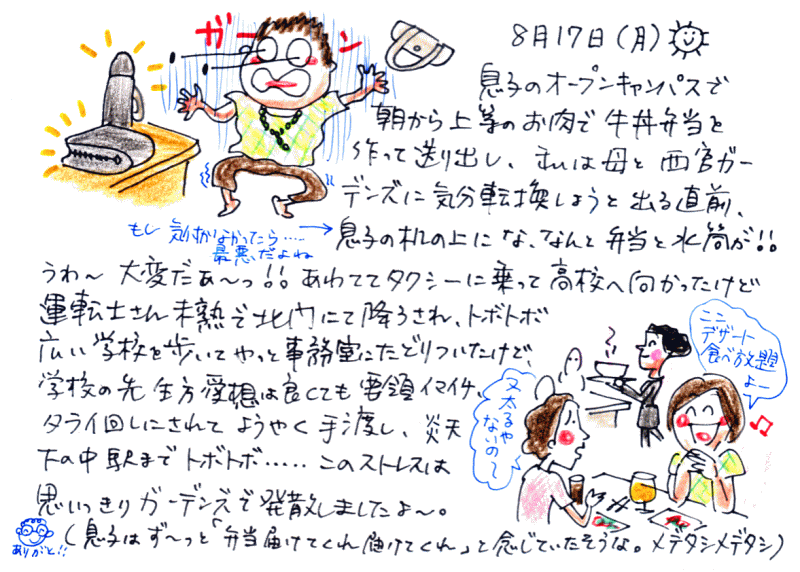 ガーン
8月17日(月)
息子のオープンキャンパスで
朝から上等のお肉で牛丼弁当を
作って送り出し、私は母と西宮ガー
デンズに気分転換しようと出る直前、
もし気付かなかったら‥‥
最悪だよね
息子の机の上にな、なんと弁当と水筒が!!
うわ〜大変だぁ〜っ!!あわててタクシーに乗って高校へ向かったけど
運転士さん未熟で北門にて降ろされ、トボトボ
広い学校を歩いてやっと事務室にたどりついたけど、
学校の先生方愛想は良くても要領イマイチ、
タライ回しにされてようやく手渡し、炎天
下の中駅までトボトボ‥‥‥このストレスは
思いっきりガーデンズで発散しましたよ〜。
(息子はず〜っと「弁当届けてくれ届けてくれ」と念じていたそうな。メデタシメデタシ)
ありがと!!
ここ
デザート
食べ放題
よー
又太るや
ないの〜